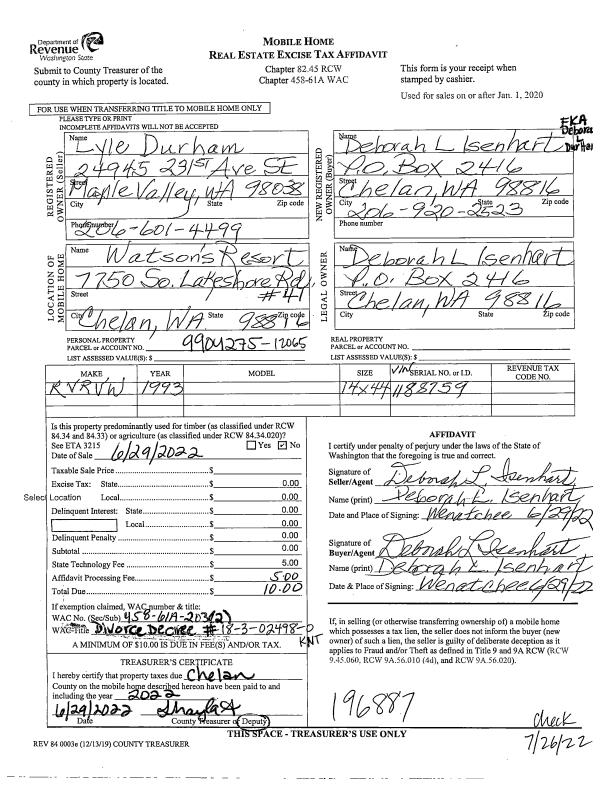 Department of
Revenue
Washington State
MOBILE HOME
REAL ESTATE EXCISE TAX AFFIDAVIT
Submit to County Treasurer of the
county in which property is located.
Chapter 82.45 RCW
Chapter 458-61A WAC
This form is your receipt when
stamped by cashier.
Used for sales on or after Jan. 1, 2020
FOR USE WHEN TRANSFERRING TITLE TO MOBILE HOME ONLY
PLEASE TYPE OR PRINT
INCOMPLETE AFFIDAVITS WILL NOT BE ACCEPTED
REGISTERED OWNER (Seller)
Name Lyle Durham
24945 231st Ave SE
Street Maple Valley, WA 98038
City State Zip code
Phone number 206-601-4499
NEW REGISTERED OWNER (Buyer)
FKA
Debora
L
Durham
Name Deborah L Isenhart
P.O. Box 2416
Street Chelan, WA 98816
City State Zip code
206-920-2523
Phone number
LOCATION OF MOBILE HOME
Name Watson's Resort
7750 So. Lakeshore Rd,
Street #41
City Chelan, WA State 98816 Zip code
LEGAL OWNER
Name Deborah L Isenhart
P.O. Box 2416
Street Chelan, WA 98816
City State Zip code
PERSONAL PROPERTY
PARCEL or ACCOUNT NO. 9904275-12065
LIST ASSESSED VALUE(S): $
REAL PROPERTY
PARCEL or ACCOUNT NO.
LIST ASSESSED VALUE(S): $
MAKE YEAR MODEL SIZE VIN SERIAL NO. or I.D. REVENUE TAX CODE NO.
RVRVW 1993 14x44 1188759
Is this property predominantly used for timber (as classified under RCW
84.34 and 84.33) or agriculture (as classified under RCW 84.34.020)?
See ETA 3215 Yes ✓ No
Date of Sale 6/29/2022
Taxable Sale Price $
Excise Tax: State $ 0.00
Select Location Local $ 0.00
Delinquent Interest: State $ 0.00
Local $ 0.00
Delinquent Penalty $ 0.00
Subtotal $ 0.00
State Technology Fee $ 5.00
Affidavit Processing Fee $ 5.00
Total Due $ 10.00
If exemption claimed, WAC number & title:
WAC No. (Sec/Sub) 458-61A-203(2)
WAC Title Divorce Decree #18-3-02498-0
KNT
A MINIMUM OF $10.00 IS DUE IN FEE(S) AND/OR TAX.
TREASURER'S CERTIFICATE
I hereby certify that property taxes due Chelan
County on the mobile home described hereon have been paid to and
including the year 2022
6/29/2022
Date County Treasurer or Deputy
AFFIDAVIT
I certify under penalty of perjury under the laws of the State of
Washington that the foregoing is true and correct.
Signature of
Seller/Agent Deborah L Isenhart
Name (print) Deborah L. Isenhart
Date and Place of Signing: Wenatchee 6/29/22
Signature of
Buyer/Agent Deborah L Isenhart
Name (print) Deborah L. Isenhart
Date & Place of Signing: Wenatchee 6/29/22
If, in selling (or otherwise transferring ownership of) a mobile home
which possesses a tax lien, the seller does not inform the buyer (new
owner) of such a lien, the seller is guilty of deliberate deception as it
applies to Fraud and/or Theft as defined in Title 9 and 9A RCW (RCW
9.45.060, RCW 9A.56.010 (4d), and RCW 9A.56.020).
196887
check
7/26/22
THIS SPACE - TREASURER'S USE ONLY
REV 84 0003e (12/13/19) COUNTY TREASURER